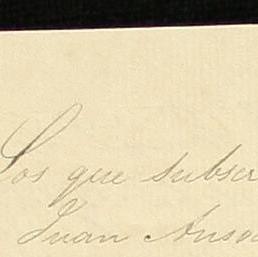 Los que subscr
Juan Anso